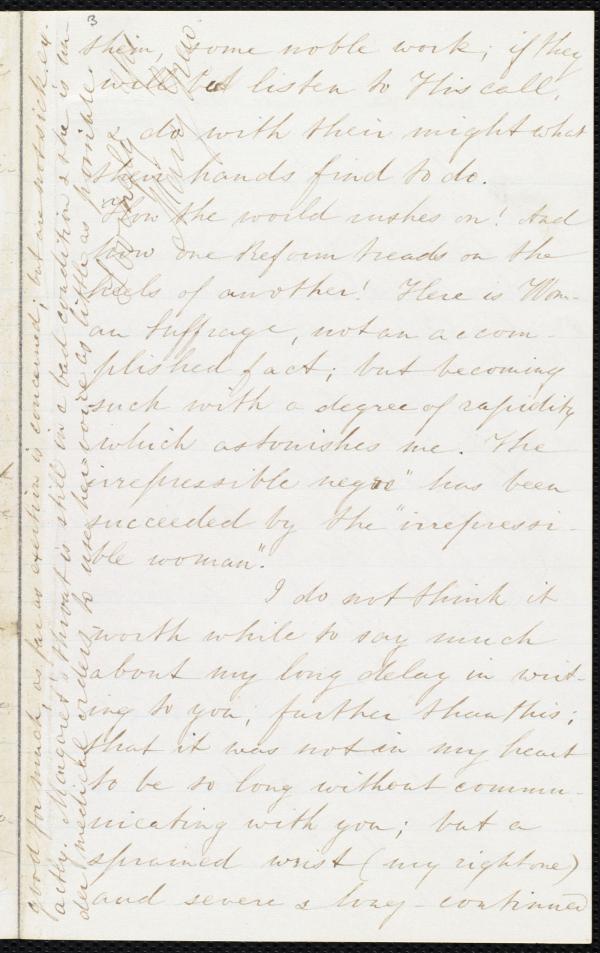 3
them, some noble work; if they
will but listen to His call,
& do with their might what
their hands find to do.
How the world rushes on! And
how one Reform treads on the
heels of another! Here is Wom-
an Suffrage, not an accom-
plished fact; but becoming
such with a degree of rapidity
which astonishes me. The
irrepressible negro" has been
succeeded by the "irrepressi-
ble woman".
I do not think it
worth while to say much
about my long delay in writ-
ing to you, further than this;
that it was not in my heart
to be so long without commu-
nicating with you; but a
sprained wrist (my right one)
and severe & long-continued
good for much, as far as exertion is concerned; but are not sick, ex-
actly. Margaret's throat is still in a bad condition & she is un-
der medical orders, to use her voice as little as possible.